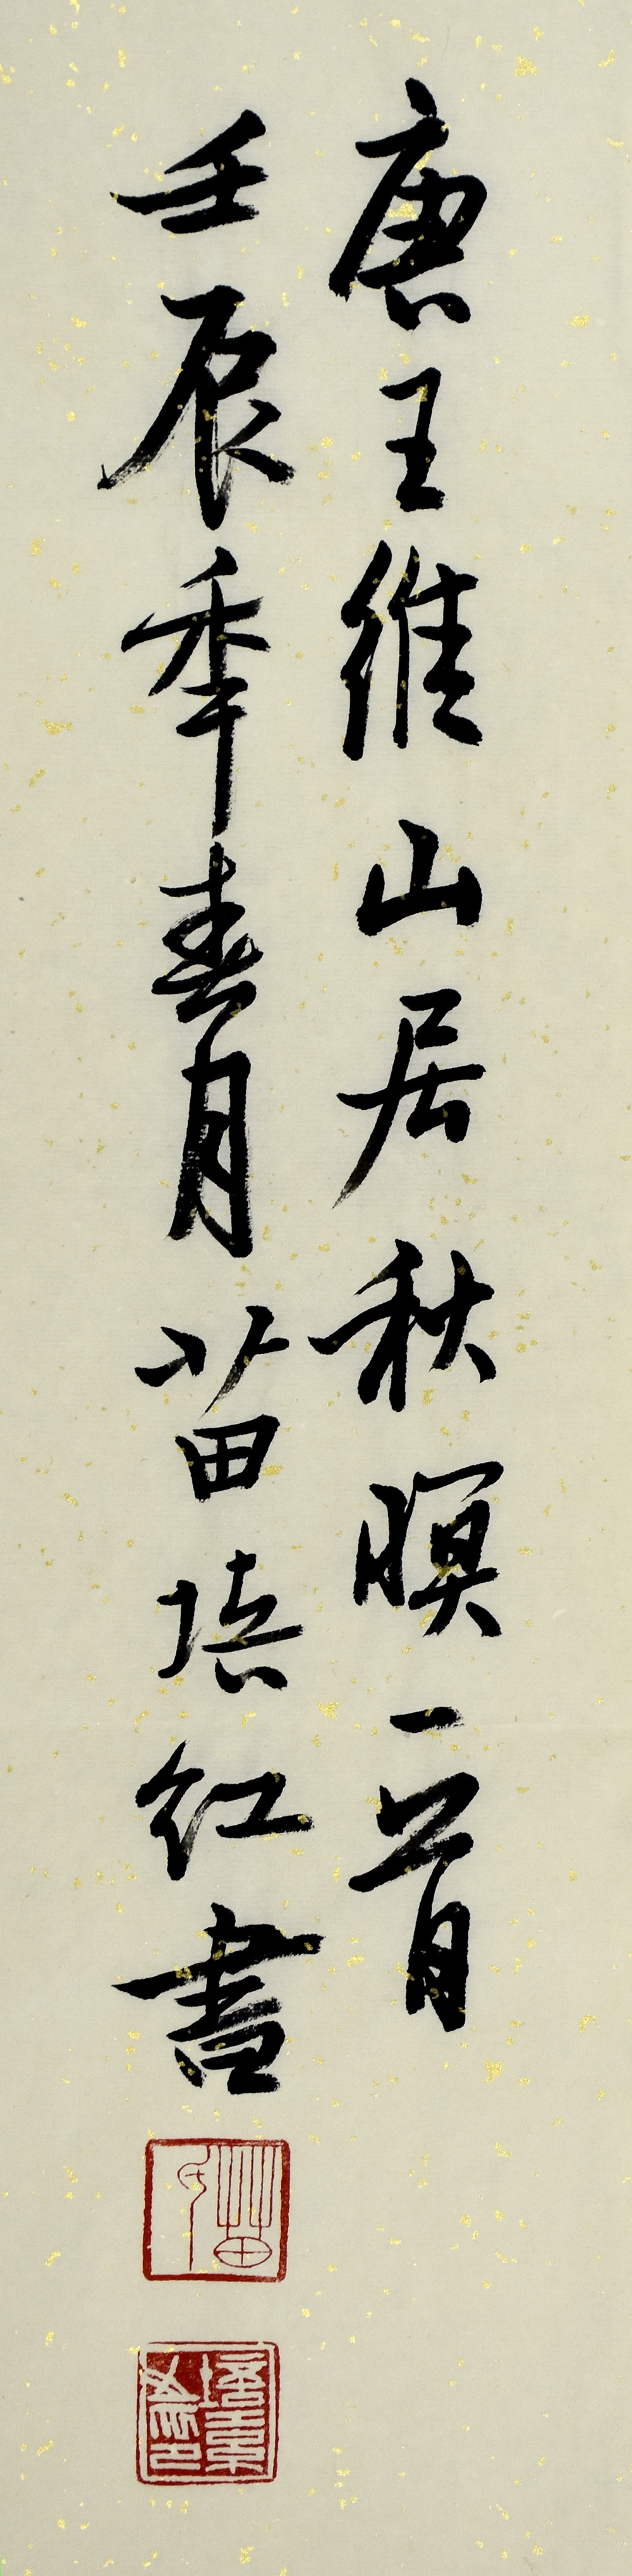 唐王維山居秋暝一首
壬辰年春月苗培红書
苗氏